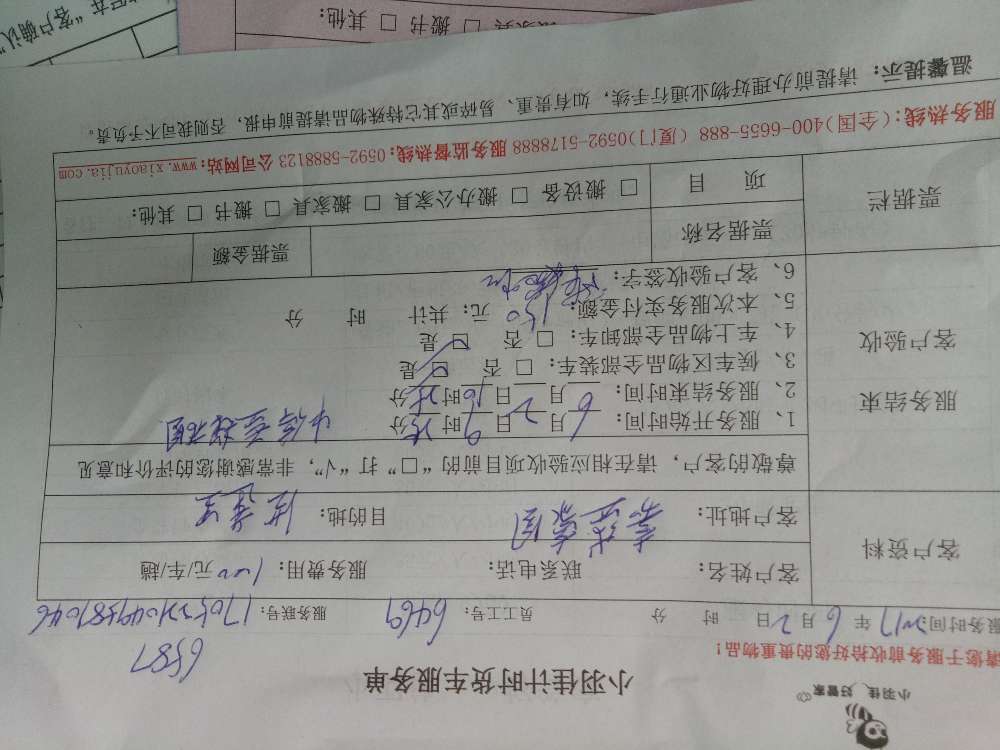 小羽佳 好管家
小羽佳计时货车服务单
6587
请您于服务前收拾好您的贵重物品!
服务时间: 2017 年 6 月 2 日 时 分 员工工号: 6469 服务联号:
客户资料
客户姓名: 联系电话: 服务费用: 100 元/车/趟
客户地址: 目的地:
尊敬的客户,请在相应验收项目前的“□”打“√”,非常感谢您的评价和意见
服务结束
客户验收
1、服务开始时间: 6 月 2 日 9 时 分
2、服务结束时间: 月 日 10 时 分
3、候车区物品全部装车: □ 否 □ 是
4、车上物品全部卸车: □ 否 □ 是
5、本次服务实付金额: 150 元; 共计 时 分
6、客户验收签字:
票据栏
票据名称 票据金额
项 目 □ 搬设备 □ 搬办公家具 □ 搬家具 □ 搬书 □ 其他:
服务热线:(全国)400-6655-888 (厦门)0592-5178878 服务监督热线:0592-5888123 公司网站:www.xiaoyujia.com
温馨提示: 请提前办理好物业通行手续,如有贵重、易碎或其它特殊物品请提前申报,否则我司不予负责。
□ 搬书 □ 其他:
“客户确认”